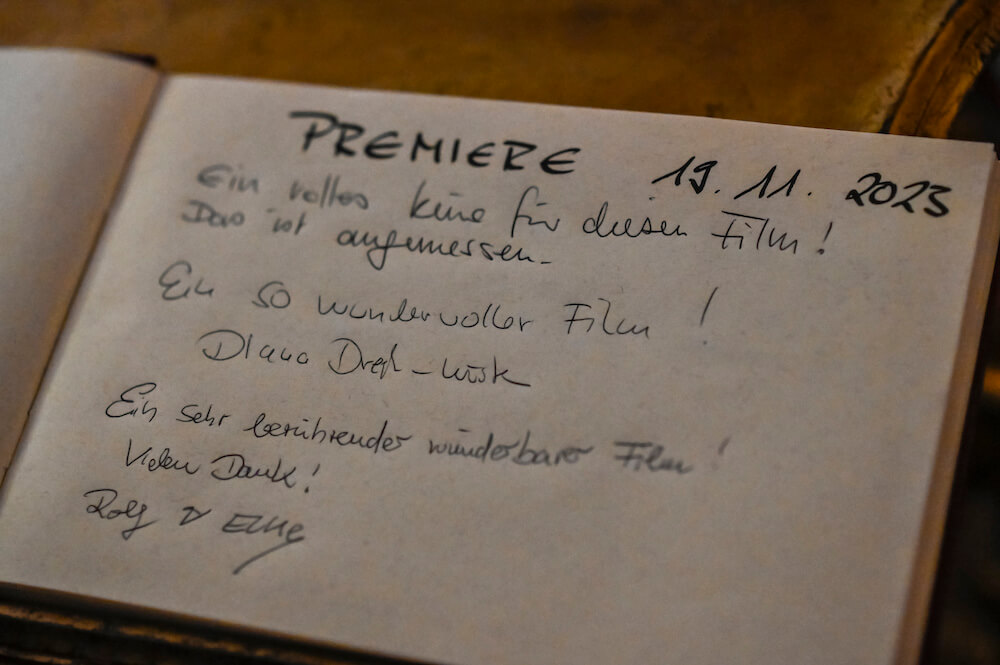 PREMIERE 19. 11. 2023
Ein volles Kino für diesen Film!
Das ist angemessen.
Ein so wundervoller Film !
Diana
Ein sehr berührender wunderbarer Film !
Vielen Dank!
Rolf